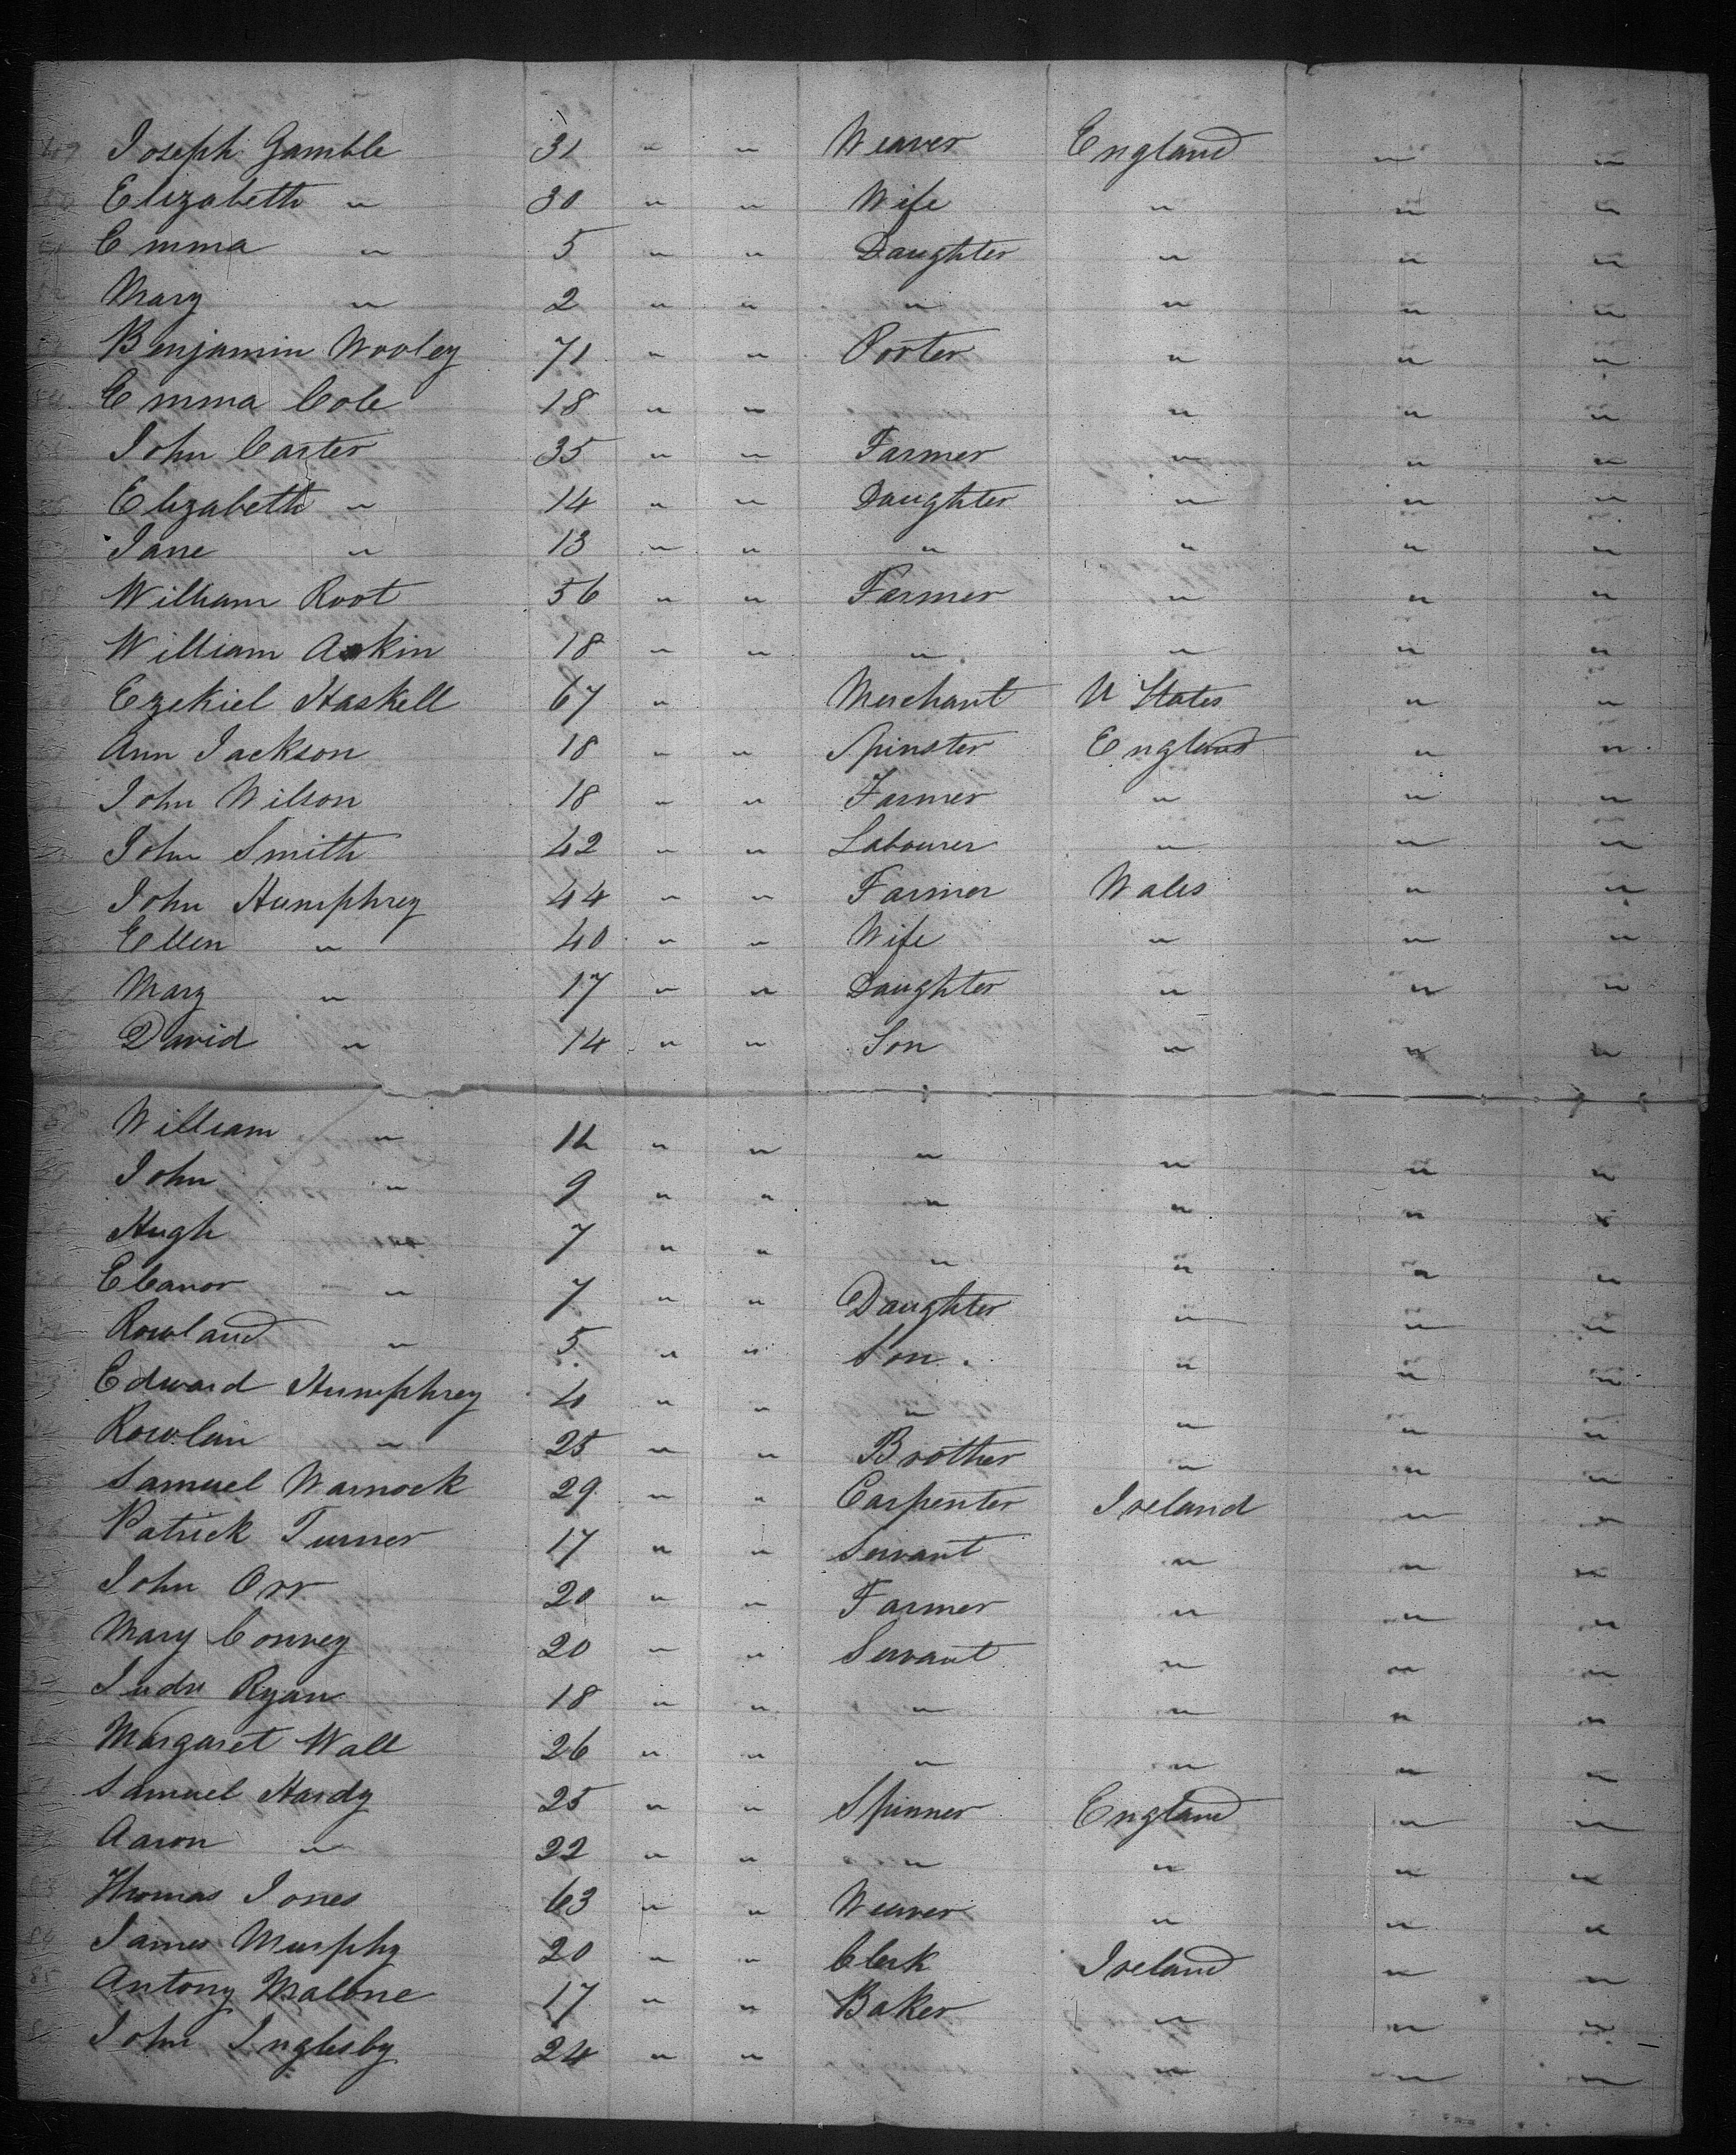 Joseph Gamble 31 " " Weaver England " "
Elizabeth " 30 " " Wife " " "
Emma " 5 " " Daughter " " "
Mary " 2 " " " " " "
Benjamin Wooley 71 " " Porter " " "
Emma Cole 18 " " " " "
John Carter 35 " " Farmer " " "
Elizabeth " 14 " " Daughter " " "
Jane " 13 " " " " " "
William Root 56 " " Farmer " " "
William Askin 18 " " " " " "
Ezekiel Haskell 67 " Merchant U States " "
Ann Jackson 18 " " Spinster England " "
John Wilson 18 " " Farmer " " "
John Smith 42 " " Labourer " " "
John Humphrey 44 " " Farmer Wales " "
Ellen " 40 " " Wife " " "
Mary " 17 " " Daughter " " "
David " 14 " " Son " " "
William " " " " " " "
John " 9 " " " " " "
Hugh " 7 " " " " " "
Eleanor " 7 " " Daughter " " "
Rowland " 5 " " Son " " "
Edward Humphrey 4 " " " " " "
Rowlan " 25 " " Brother " " "
Samuel Warnock 29 " " Carpenter Ireland " "
Patrick Turner 17 " " Servant " " "
John Orr 20 " " Farmer " " "
Mary Convey 20 " " Servant " " "
Ryan 18 " " " " " "
Margaret Wall 26 " " " " " "
Samuel Hardy 25 " " Spinner England " "
Aaron " 22 " " " " " "
Thomas Jones 63 " " Weaver " " "
84 James Murphy 20 " " Clerk Ireland " "
85 Antony Malone 17 " " Baker " " "
John Inglesby 24 " " " " "